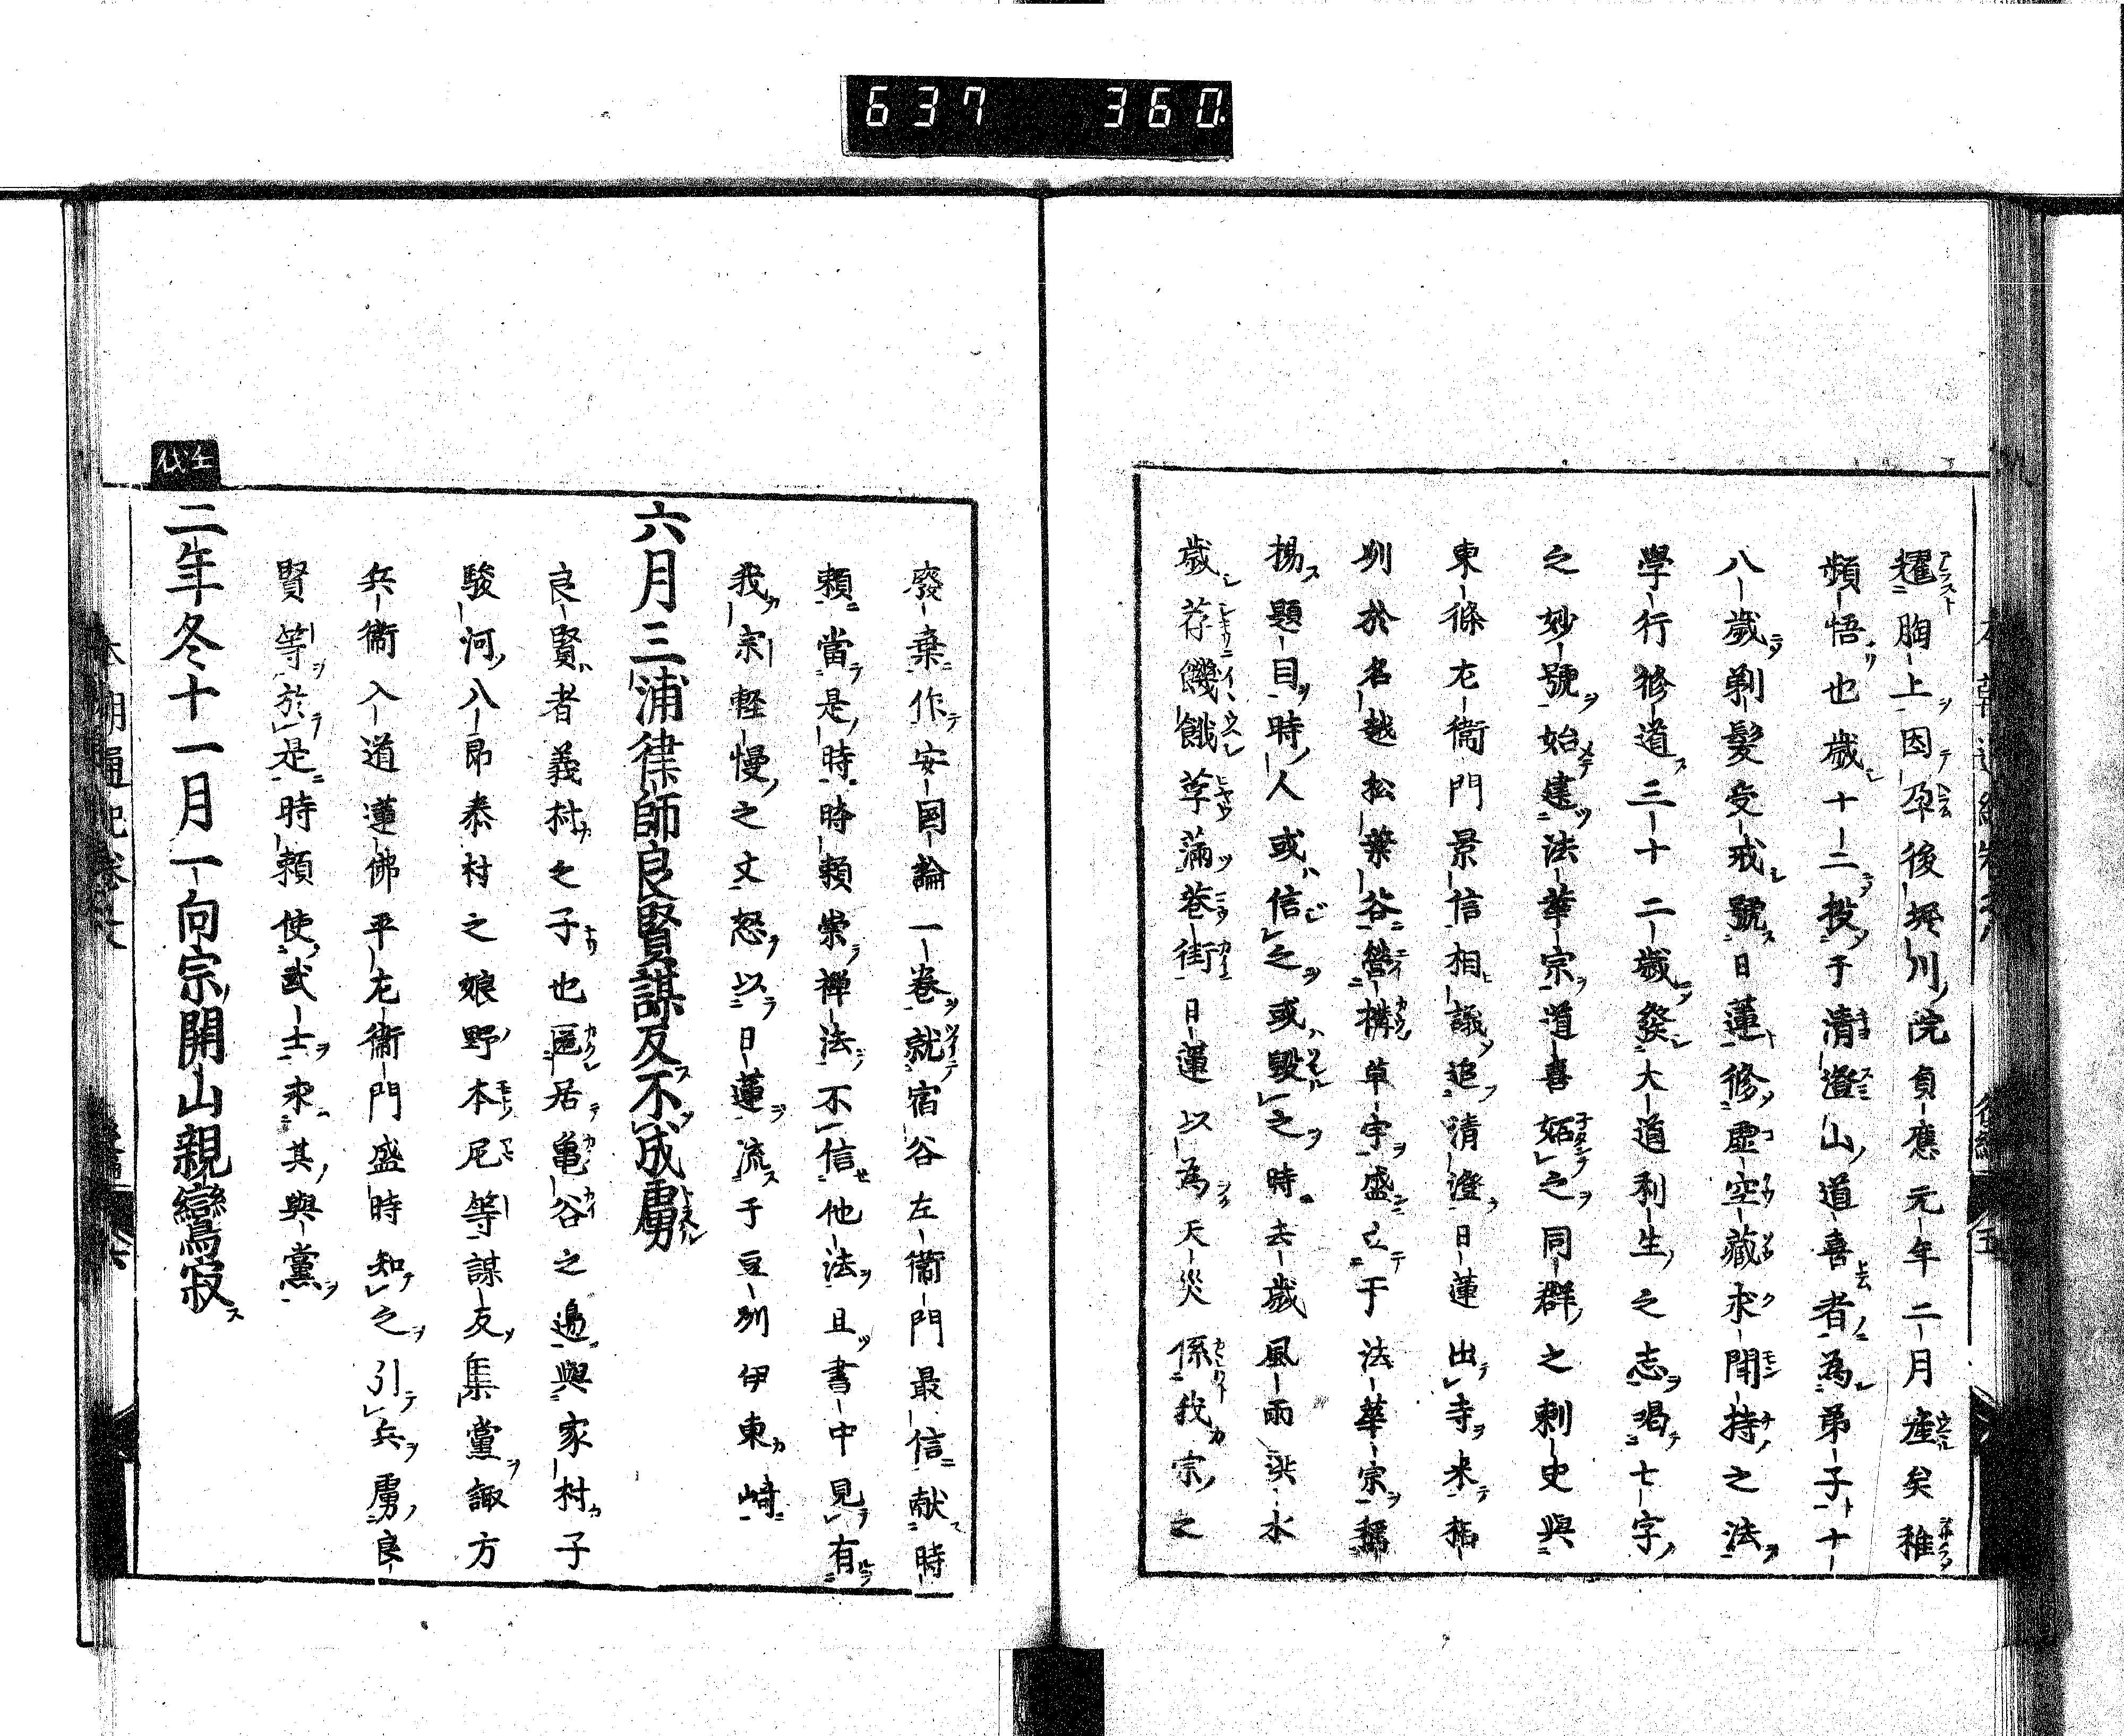 637 360
耀胸上因孕後堀川院貞應元年二月産矣稚
頴悟也歳十二投于清澄山道善者為弟子十
八歳剃髪受戒號日蓮修虚空藏求聞持之法
學行修道三十二歳發大道利生之志渇七字
之妙號始建法華宗道善妬之同群之刺史與
東條左衞門景信相議追清澄日蓮出寺来栢
州於名越松葉谷營構草宇盛亡于法華宗稱
揚題目時人或信之或毀之時去歳風雨洪水
歳荐饑餓莩満巷街日蓮以為天災係我宗之
廢棄作安国論一巻就宿谷左衞門最信献時
頼當是時時頼崇禅法不信他法且書中見有
我宗軽慢之文怒以日蓮流于豆州伊東崎
六月三浦律師良賢謀反不成虜
良賢者義村之子也匿居亀谷之邉與家村子
駿河八郎泰村之娘野本尼等謀反集黨諏方
兵衞入道蓮佛平左衞門盛時知之引兵虜良
賢等於是時頼使武士求其與黨
二年冬十一月一向宗開山親鸞寂